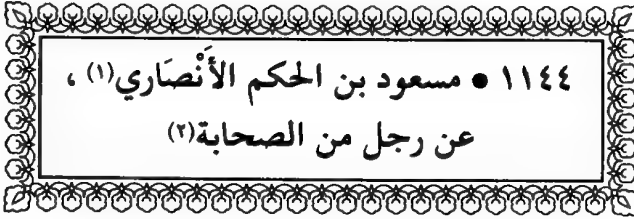 ١١٤٤ ● مسعود بن الحكم الأَنْصَاري(١) ،
عن رجل من الصحابة(٢)